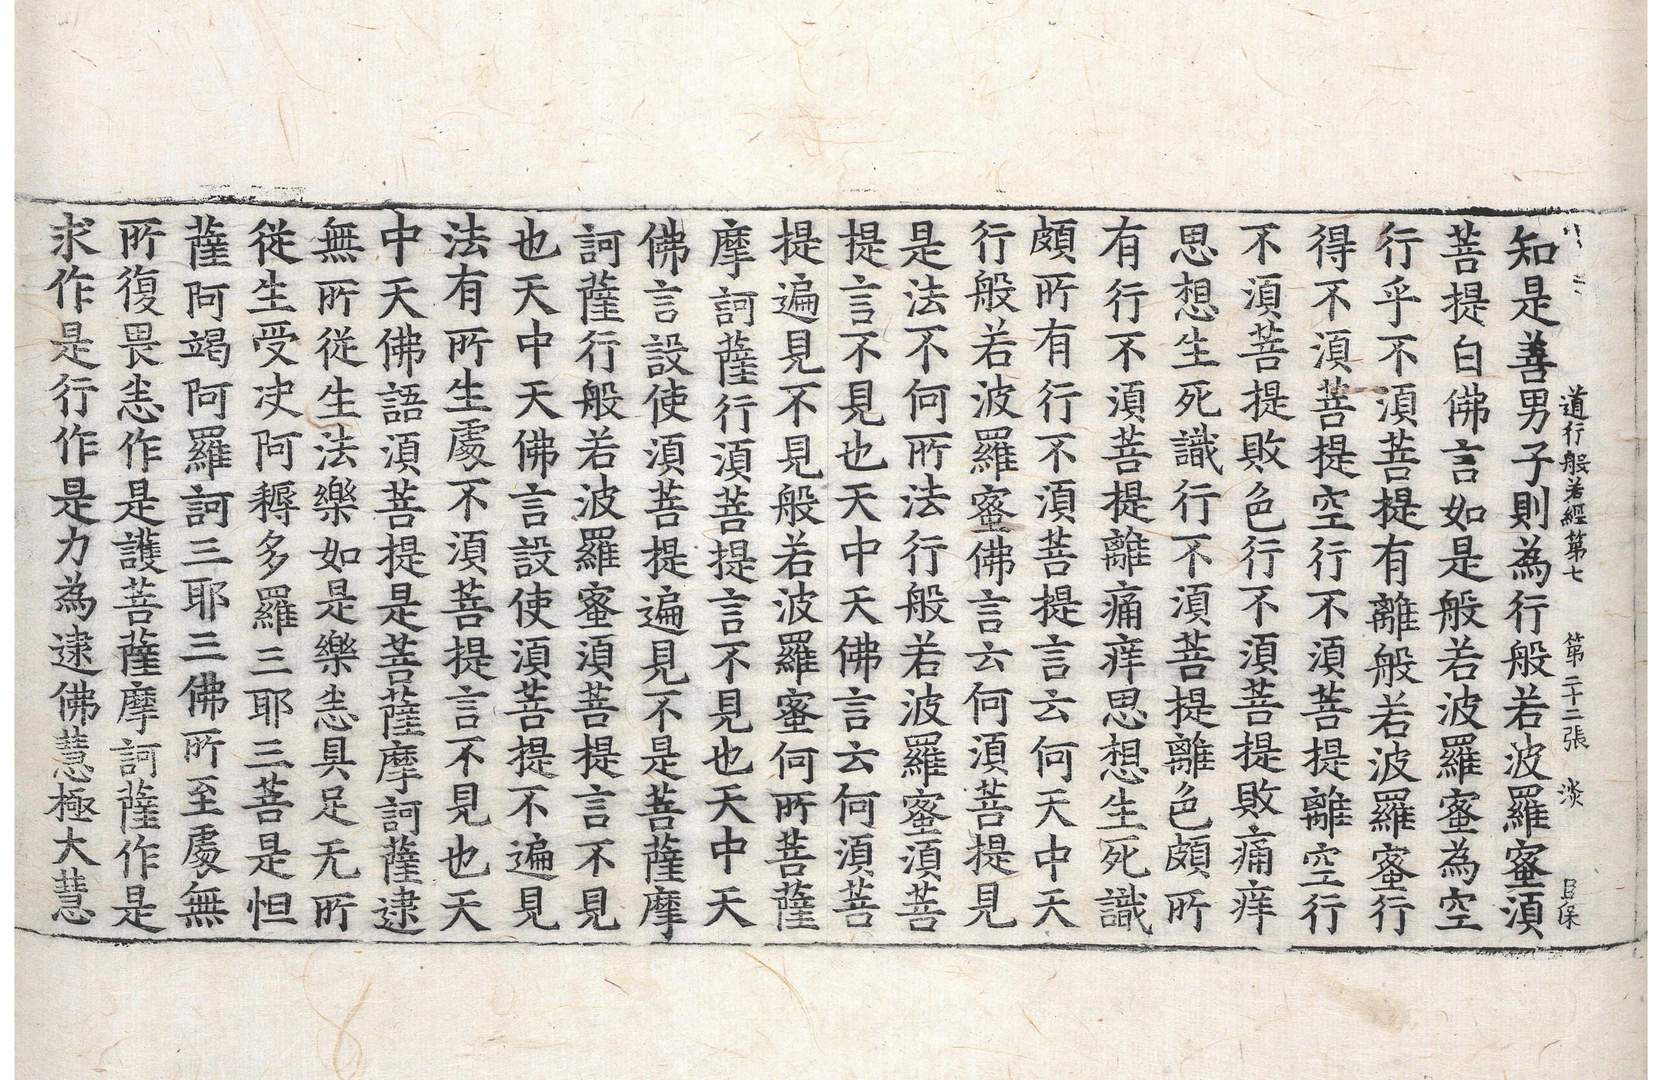 道行般若經第七 第二十二張 淡
知是善男子則為行般若波羅蜜湏
菩提白佛言如是般若波羅蜜為空
行乎不湏菩提有離般若波羅蜜行
得不湏菩提空行不湏菩提離空行
不湏菩提敗色行不湏菩提敗痛痒
思想生死識行不湏菩提離色頗所
有行不湏菩提離痛痒思想生死識
頗所有行不湏菩提言云何天中天
行般若波羅蜜佛言云何湏菩提見
是法不何所法行般若波羅蜜湏菩
提言不見也天中天佛言云何湏菩
提遍見不見般若波羅蜜何所菩薩
摩訶薩行湏菩提言不見也天中天
佛言設使湏菩提遍見不是菩薩摩
訶薩行般若波羅蜜湏菩提言不見
也天中天佛言設使湏菩提不遍見
法有所生處不湏菩提言不見也天
中天佛語湏菩提是菩薩摩訶薩逮
無所從生法樂如是樂悉具足无所
從生受决阿耨多羅三耶三菩是怛
薩阿竭阿羅訶三耶三佛所至處無
所復畏悉作是護菩薩摩訶薩作是
求作是行作是力為逮佛慧極大慧